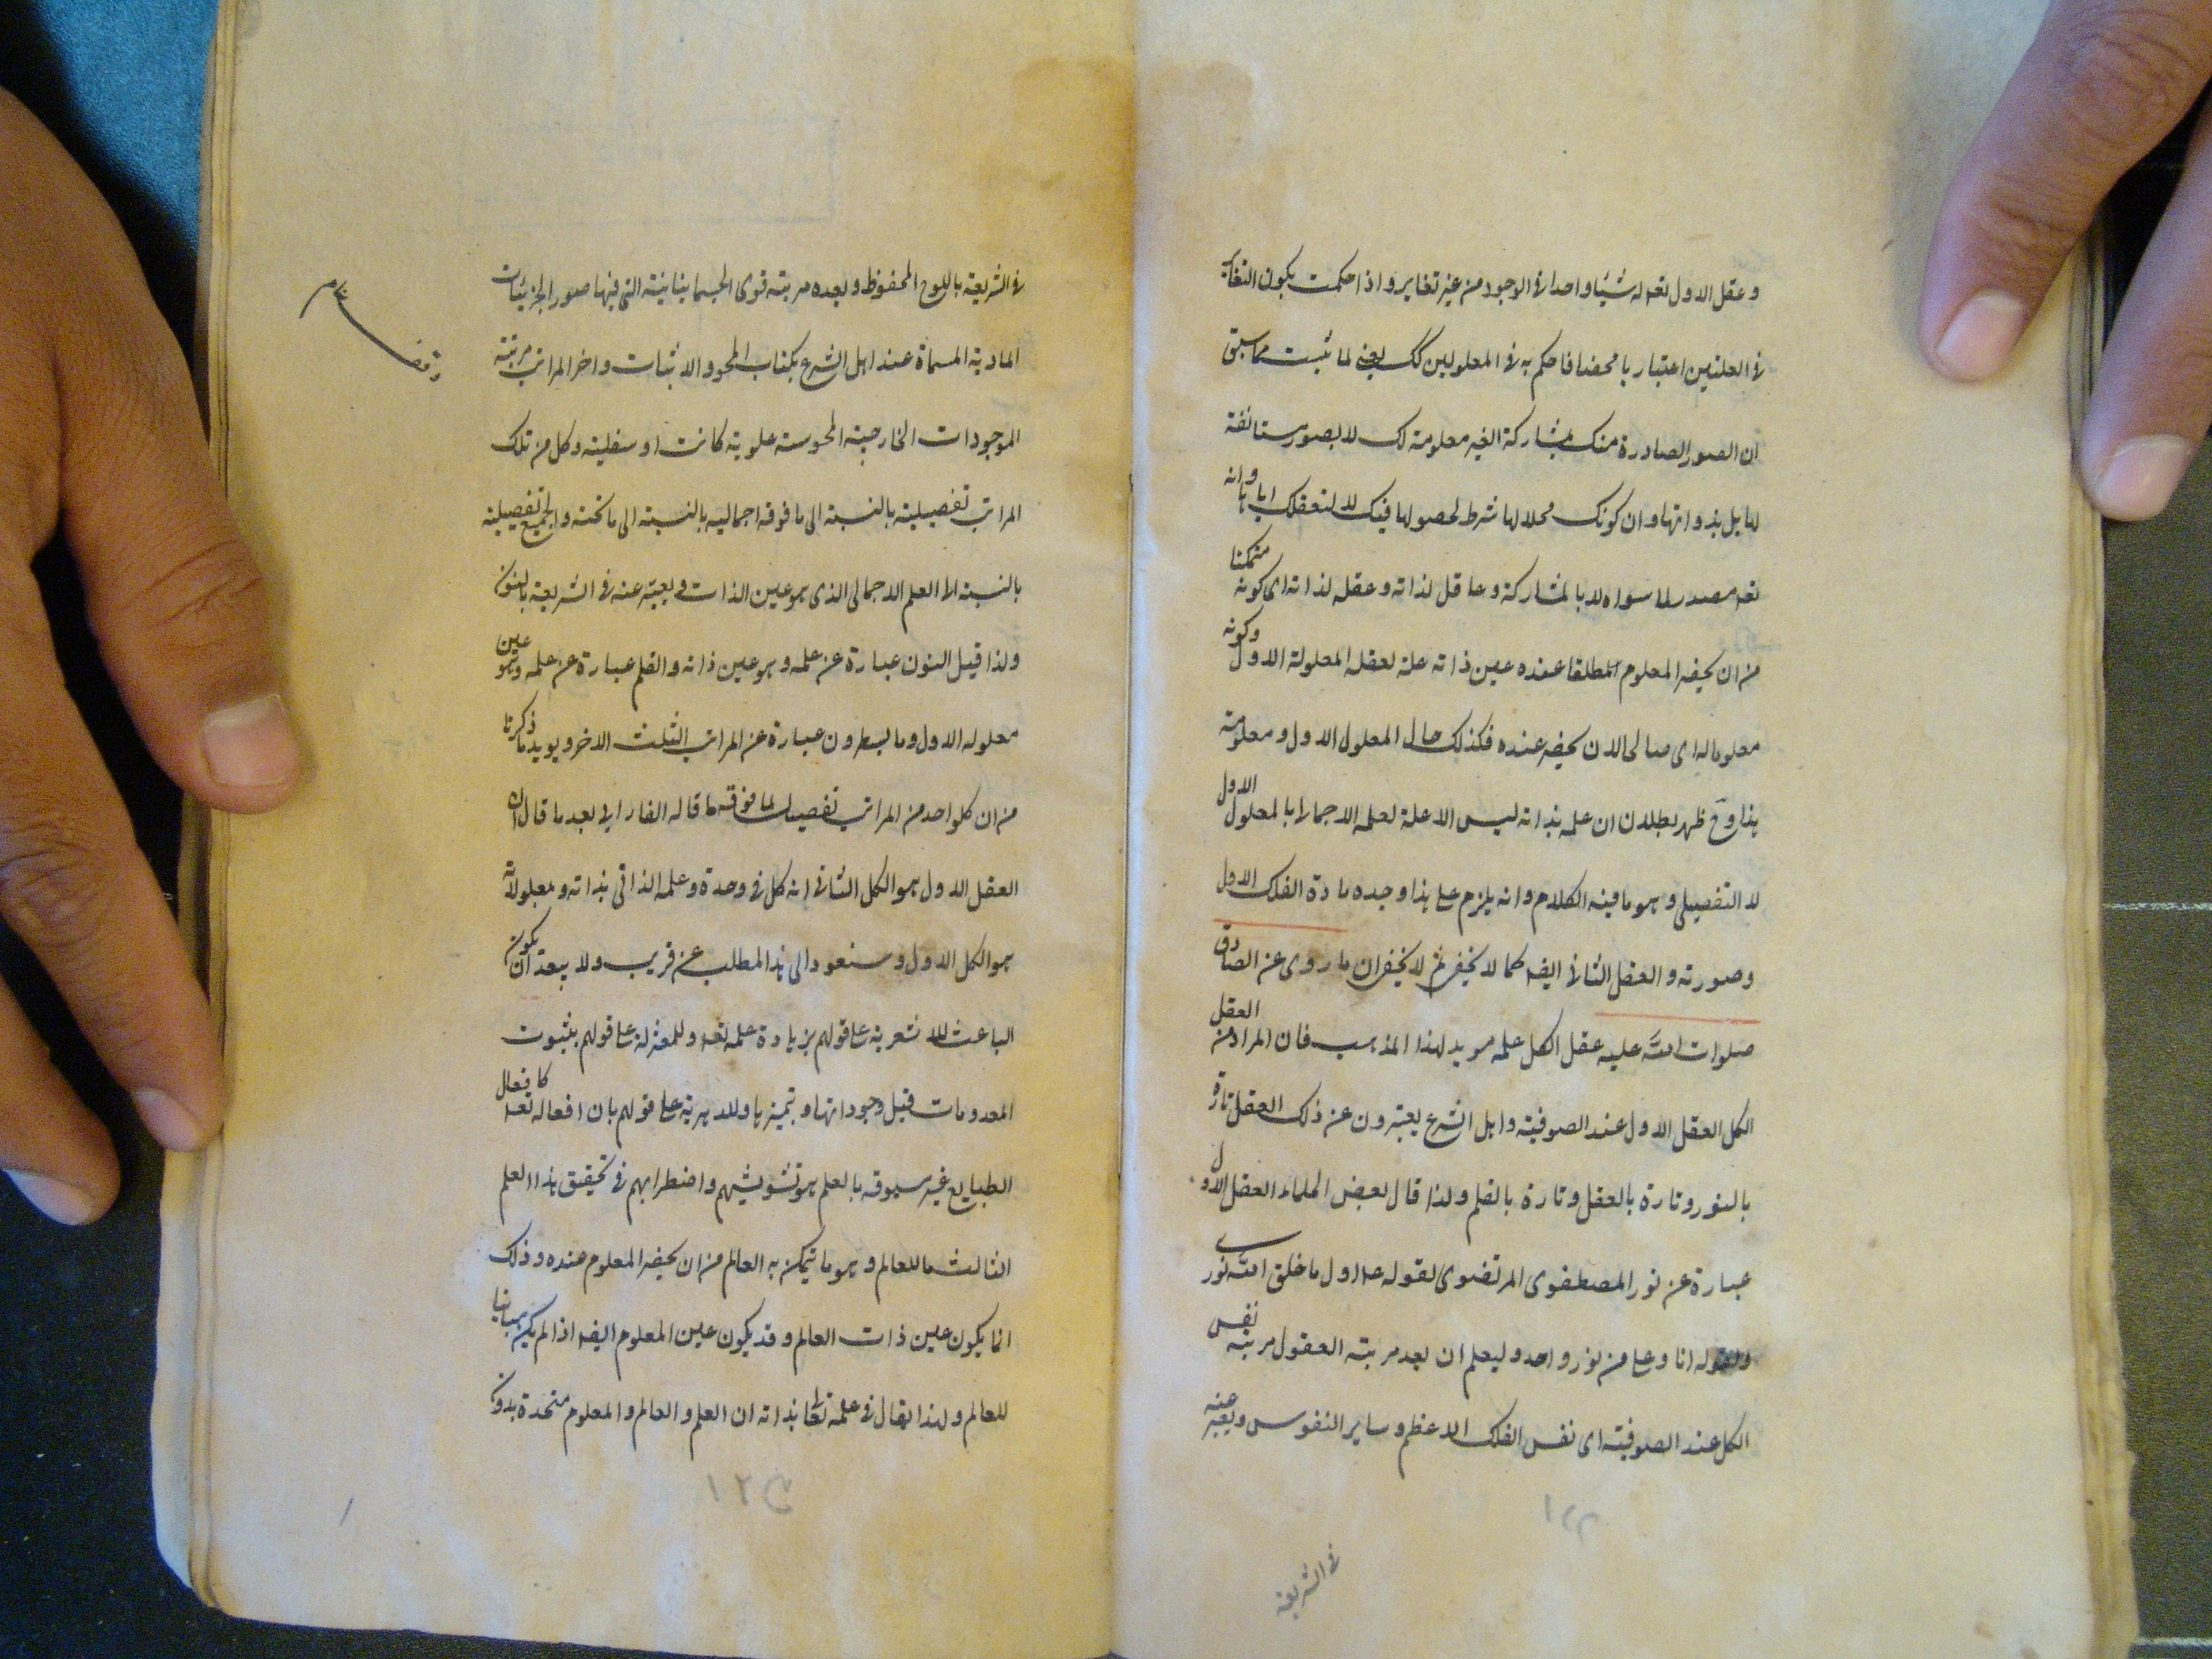 وعقل الاول تعه له شيئا واحدا فى الوجود من غير تغاير واذا حكمت بكون التغاير
فى العلتين اعتباريا محضا فاحكم به فى المعلولين كك يعنى لما ثبت مما سبق
ان الصور الصادرة منك بمشاركة الغير معلومة لك لا بصور مستانفة
لها بل بذواتها وان كونك محلا لها شرط لحصولها فيك لا لتعقلك اياها وانه
تعه مصدر لما سواه لا بالمشاركة وعاقل لذاته وعقله لذاته اى كونه متمكنا
من ان يحضر المعلوم المطلقا عنده عين ذاته علة لعقله المعلولة الاول وكونه
معلوما له اى صالحا لان يحضر عنده فكذلك حال المعلول الاول ومعلوميته
هذا وح ظهر بطلان ان علمه بذاته ليس الا علة لعلمه الاجمالى بالمعلول الاول
لا التفصيلى وهو ما فيه الكلام وانه يلزم على هذا وجده مادة الفلك الاول
وصورته والعقل الثانى ايضه كما لا يخفى ثم لا يخفى ان ما روى عن الصادق
صلوات الله عليه عقل الكل علمه مويد لهذا المذهب فان المراد من العقل
الكل العقل الاول عند الصوفية واهل الشرع يعبرون عن ذلك العقل تارة
بالنور وتارة بالعقل وتارة بالقلم ولذا قال بعض العلماء العقل الاول
عبارة عن نور المصطفوى المرتضوى لقوله ع اول ما خلق الله نورى
ولقوله انا وعلى من نور واحد وليعلم ان بعد مرتبة العقول مرتبة نفس
الكل عند الصوفية اى نفس الفلك الاعظم وساير النفوس ويعبر عنه
فى الشريعة
فى الشريعة باللوح المحفوظ وبعده مرتبة قوى الجسمانية التى فيها صور الجزئيات
المادية المسماة عند اهل الشرع بكتاب المحو والاثبات واخر المراتب مرتبة
الموجودات الخارجية المحوسة علوية كانت او سفلية وكل من تلك
المراتب تفصيلية بالنسبة الى ما فوقه اجماليه بالنسبة الى ما تحته والجميع تفصيلية
بالنسبة الى العلم الاجمالى الذى هو عين الذات ويعبر عنه فى الشريعة بالنون
ولذا قيل النون عبارة عن علمه وهو عين ذاته والقلم عبارة عن علمه وهو عين
معلوله الاول وما يسطرون عبارة عن المراتب الثلث الاخر ويويد ما ذكرنا
من ان كلواحد من المراتب تفصيل لما فوقه ما قاله الفارابى بعد ما قال ان
العقل الاول هو الكل الثانى انه كل فى وحدة وعلمه الذاتى بذاته ومعلولاته
هو الكل الاول وسنعود الى هذا المطلب عن قريب ولا يبعد ان يكون
الباعث للاشعرية على قولهم بزيادة علمه تعه وللمعتزلة على قولهم بثبوت
المعدومات قبل وجوداتها وتميزها وللدهرية على قولهم بان افعاله تعه كافعال
الطبايع غير مسبوقه بالعلم هو تشويشهم واضطرابهم فى تحقيق هذا العلم
الثالث ما للعالم وهو ما يتمكن به العالم من ان يحضر المعلوم عنده وذلك
انما يكون عين ذات العالم وقد يكون عين المعلوم ايضه اذا لم يكن مباينا
للعالم ولهذا يقال فى علمه تعا بذاته ان العلم والعالم والمعلوم متحدة